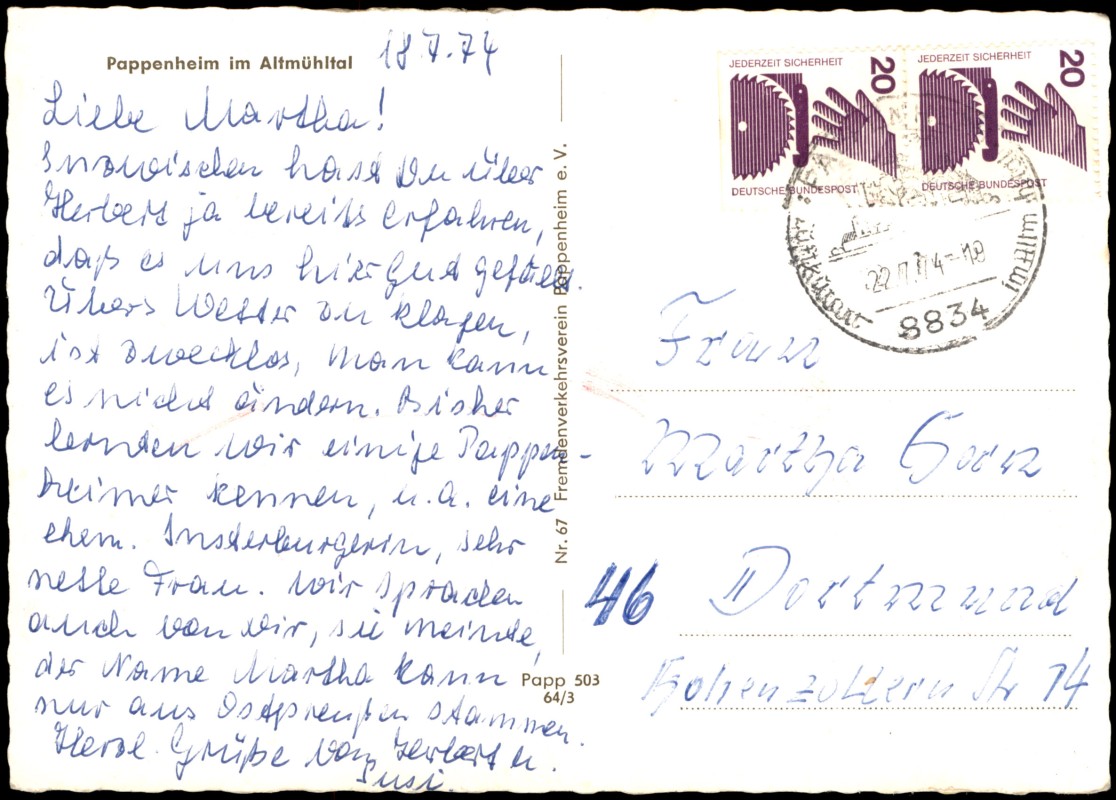 Pappenheim im Altmühltal
18.7.74
Liebe Martha!
Inzwischen hast Du über
Herbert ja bereits erfahren,
daß es uns hier gut gefällt.
Übers Wetter zu klagen,
ist zwecklos, man kann
es nicht ändern. Bisher
lernten wir einige Pappen-
heimer kennen, u.a. eine
ehem. Insterburgerin, sehr
nette Frau. Wir sprachen
auch von Dir, sie meinte,
der Name Martha kann
nur aus Ostpreußen stammen.
Herzl. Grüße von Herbert u.
Susi.
Nr. 67 Fremdenverkehrsverein Pappenheim e. V.
Papp 503
64/3
JEDERZEIT SICHERHEIT
20
DEUTSCHE BUNDESPOST
JEDERZEIT SICHERHEIT
20
DEUTSCHE BUNDESPOST
Luftkurort
22.7.74-18
8834
im Altm
Frau
Martha
46 Dortmund
Hohenzollern Str 14